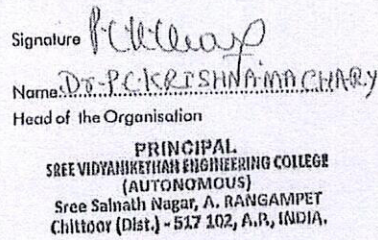 Signature
Name: Dr. P.C. KRISHNAMACHARY
Head of the Organisation
PRINCIPAL
SREE VIDYANIKETHAN ENGINEERING COLLEGE
(AUTONOMOUS)
Sree Sainath Nagar, A. RANGAMPET
Chittoor (Dist.) - 517 102, A.P., INDIA.